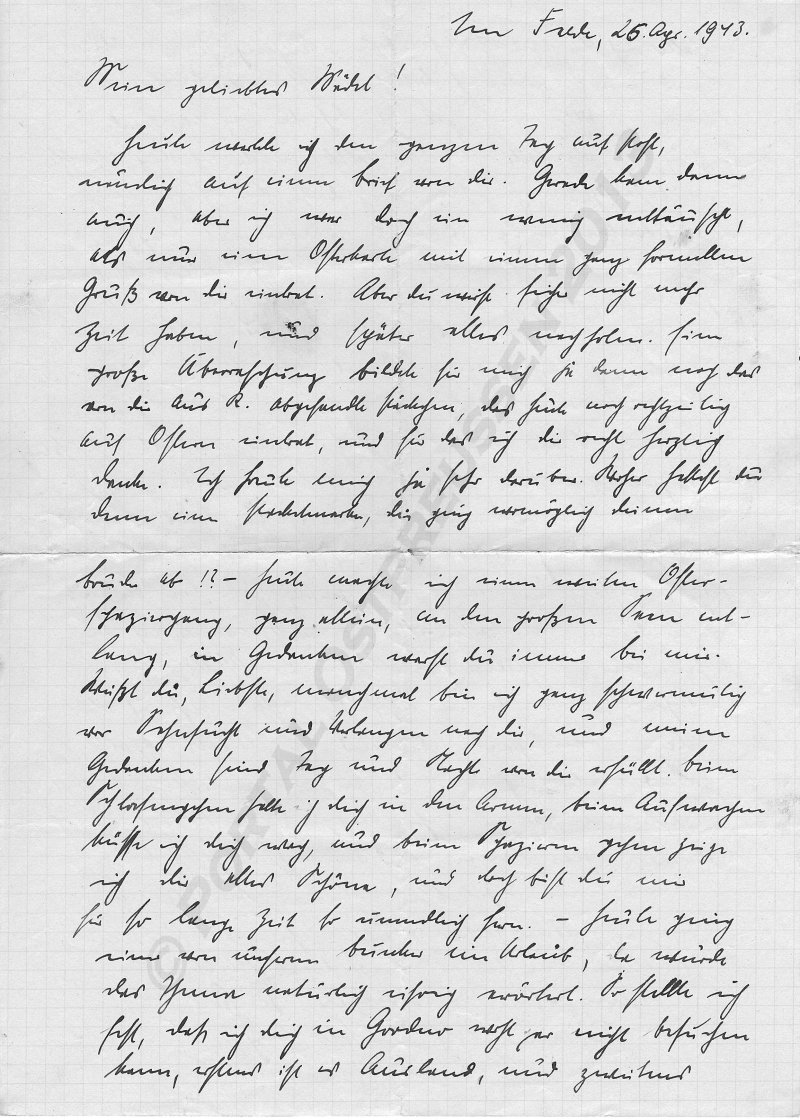 Im Felde, 25. Apr. 1943.
Mein geliebtes Mädel!
Heute wartete ich den ganzen Tag auf Post,
nämlich auf einen Brief von dir. Gerade kam dann
auch, aber ich war doch ein wenig enttäuscht,
als nur eine Osterkarte mit einem ganz formellen
Gruß von dir eintraf. Aber du wirst sicher nicht mehr
Zeit haben, und später alles nachholen. Eine
große Überraschung bildete für mich ja dann noch das
von dir aus K. abgesandte Päckchen, das heute noch rechtzeitig
auf Ostern eintraf, und für das ich dir recht herzlich
danke. Ich freute mich ja sehr darüber. Woher hattest du
denn eine Päckchenmarke, die ging womöglich deinem
Bruder ab!? – Heute machte ich einen weiten Oster-
spaziergang, ganz allein, an den großen Seen ent-
lang, in Gedanken warst du immer bei mir.
Weißt du, Liebste, manchmal bin ich ganz schwermütig
vor Sehnsucht und Verlangen nach dir, und meine
Gedanken sind Tag und Nacht von dir erfüllt. Beim
Schlafengehen halte ich dich in den Armen, beim Aufwachen
küsse ich dich wach, und beim Spazieren gehen zeige
ich dir alles Schöne, und doch bist du mir
für so lange Zeit so unendlich fern. – Heute ging
einer von unserem Bunker in Urlaub, da wurde
das Thema natürlich eifrig erörtert. So stellte ich
fest, daß ich dich in Grodno wohl gar nicht besuchen
kann, erstens ist es Ausland, und zweitens
© PORTAL-OSTPREUSSEN 2013